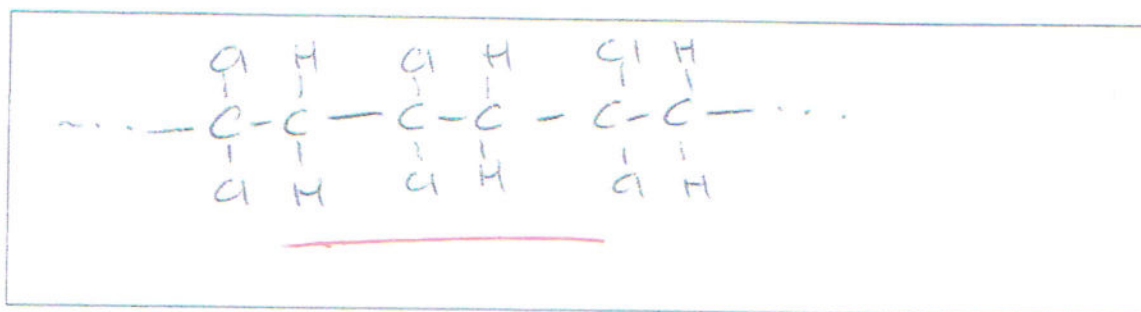 Cl H Cl H Cl H
... — C – C — C – C – C – C — ...
Cl H Cl H Cl H